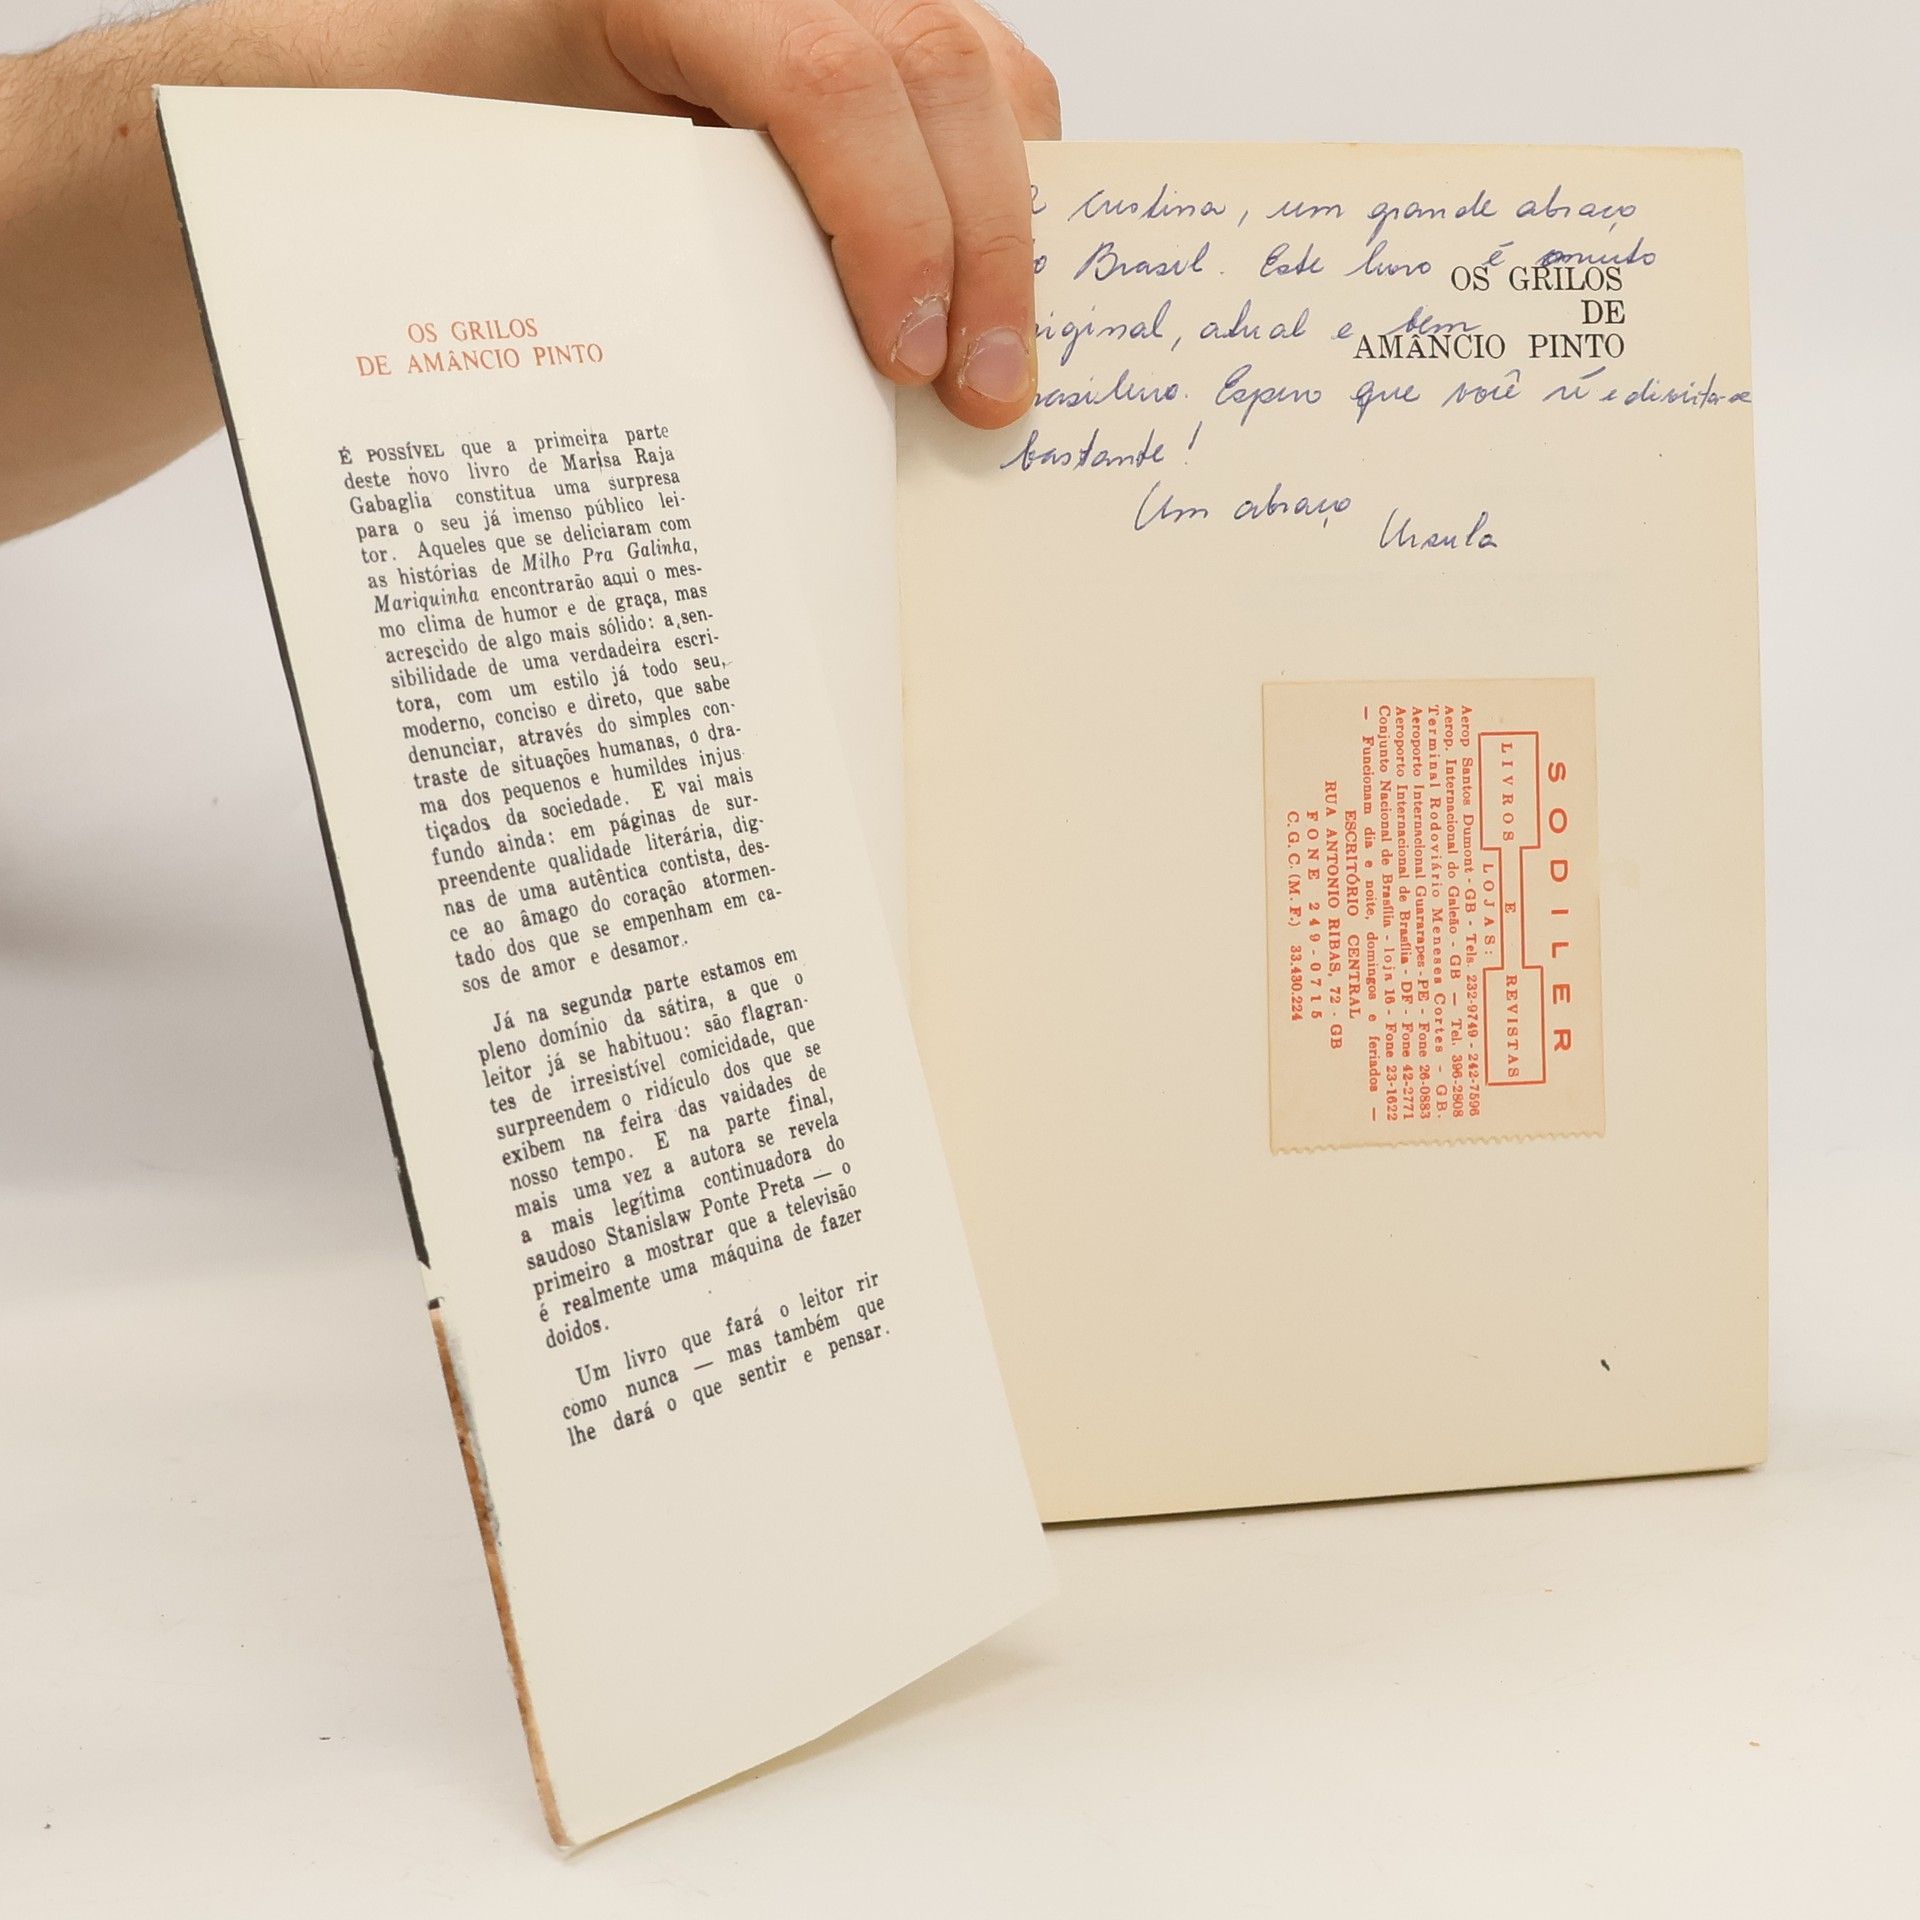 OS GRILOS
DE AMÂNCIO PINTO
É POSSÍVEL que a primeira parte
deste novo livro de Marisa Raja
Gabaglia constitua uma surpresa
para o seu já imenso público lei-
tor. Aqueles que se deliciaram com
as histórias de Milho Pra Galinha,
Mariquinha encontrarão aqui o mes-
mo clima de humor e de graça, mas
acrescido de algo mais sólido: a sen-
sibilidade de uma verdadeira escri-
tora, com um estilo já todo seu,
moderno, conciso e direto, que sabe
denunciar, através do simples con-
traste de situações humanas, o dra-
ma dos pequenos e humildes injus-
tiçados da sociedade. E vai mais
fundo ainda: em páginas de sur-
preendente qualidade literária, dig-
nas de uma autêntica contista, des-
ce ao âmago do coração atormen-
tado dos que se empenham em ca-
sos de amor e desamor.
Já na segunda parte estamos em
pleno domínio da sátira, a que o
leitor já se habituou: são flagran-
tes de irresistível comicidade, que
surpreendem o ridículo dos que se
exibem na feira das vaidades de
nosso tempo. E na parte final,
mais uma vez a autora se revela
a mais legítima continuadora do
saudoso Stanislaw Ponte Preta — o
primeiro a mostrar que a televisão
é realmente uma máquina de fazer
doidos.
Um livro que fará o leitor rir
como nunca — mas também que
lhe dará o que sentir e pensar.
Cristina, um grande abraço
Brasil. Este livro é muito
original, atual e bem
brasileiro. Espero que você ri e divirta-se
bastante!
Um abraço
Ursula
OS GRILOS
DE
AMÂNCIO PINTO
SODILER
LIVROS E REVISTAS
LOJAS:
Aerop Santos Dumont - GB - Tels. 232-9749 - 242-7596
Aerop. Internacional do Galeão - GB — Tel. 396-2808
Terminal Rodoviário Meneses Cortes - GB.
Aeroporto Internacional Guararapes - PE - Fone 26-0883
Aeroporto Internacional de Brasília - DF - Fone 42-2771
Conjunto Nacional de Brasília - loja 16 - Fone 23-1622
— Funcionam dia e noite, domingos e feriados —
ESCRITÓRIO CENTRAL
RUA ANTONIO RIBAS, 72 - GB
FONE 249-0715
C.G.C. (M.F.) 33.430.224